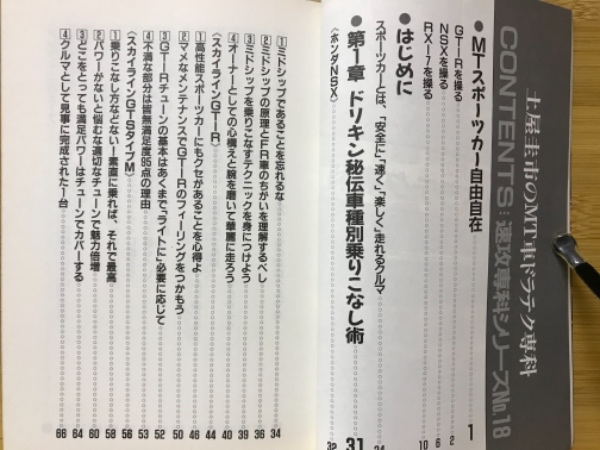 土屋圭市のMT車ドラテク専科
CONTENTS:速攻専科シリーズNo.18
●MTスポーツカー自由自在 1
GT-Rを操る 2
NSXを操る 6
RX-7を操る 10
●はじめに
スポーツカーとは、「安全に」「速く」「楽しく」走れるクルマ 24
●第1章 ドリキン秘伝車種別乗りこなし術 31
〈ホンダNSX〉 32
1 ミドシップであることを忘れるな 34
2 ミドシップの原理とFR車のちがいを理解するべし 36
3 ミドシップを乗りこなすテクニックを身につけよう 39
4 オーナーとしての心構えと腕を磨いて華麗に走ろう 40
〈スカイラインGT-R〉 44
1 高性能スポーツカーにもクセがあることを心得よ 46
2 マメなメンテナンスでGT-Rのフィーリングをつかもう 50
3 GT-Rチューンの基本はあくまで「ライトに」必要に応じて 52
4 不満な部分は皆無満足度95点の理由 53
〈スカイラインGTSタイプM〉 56
1 乗りこなし方などない!素直に乗れば、それで最高 58
2 パワーがないと悩むな適切なチューンで魅力倍増 60
3 どこをとっても満足パワーはチューンでカバーする 64
4 クルマとして見事に完成された1台 66